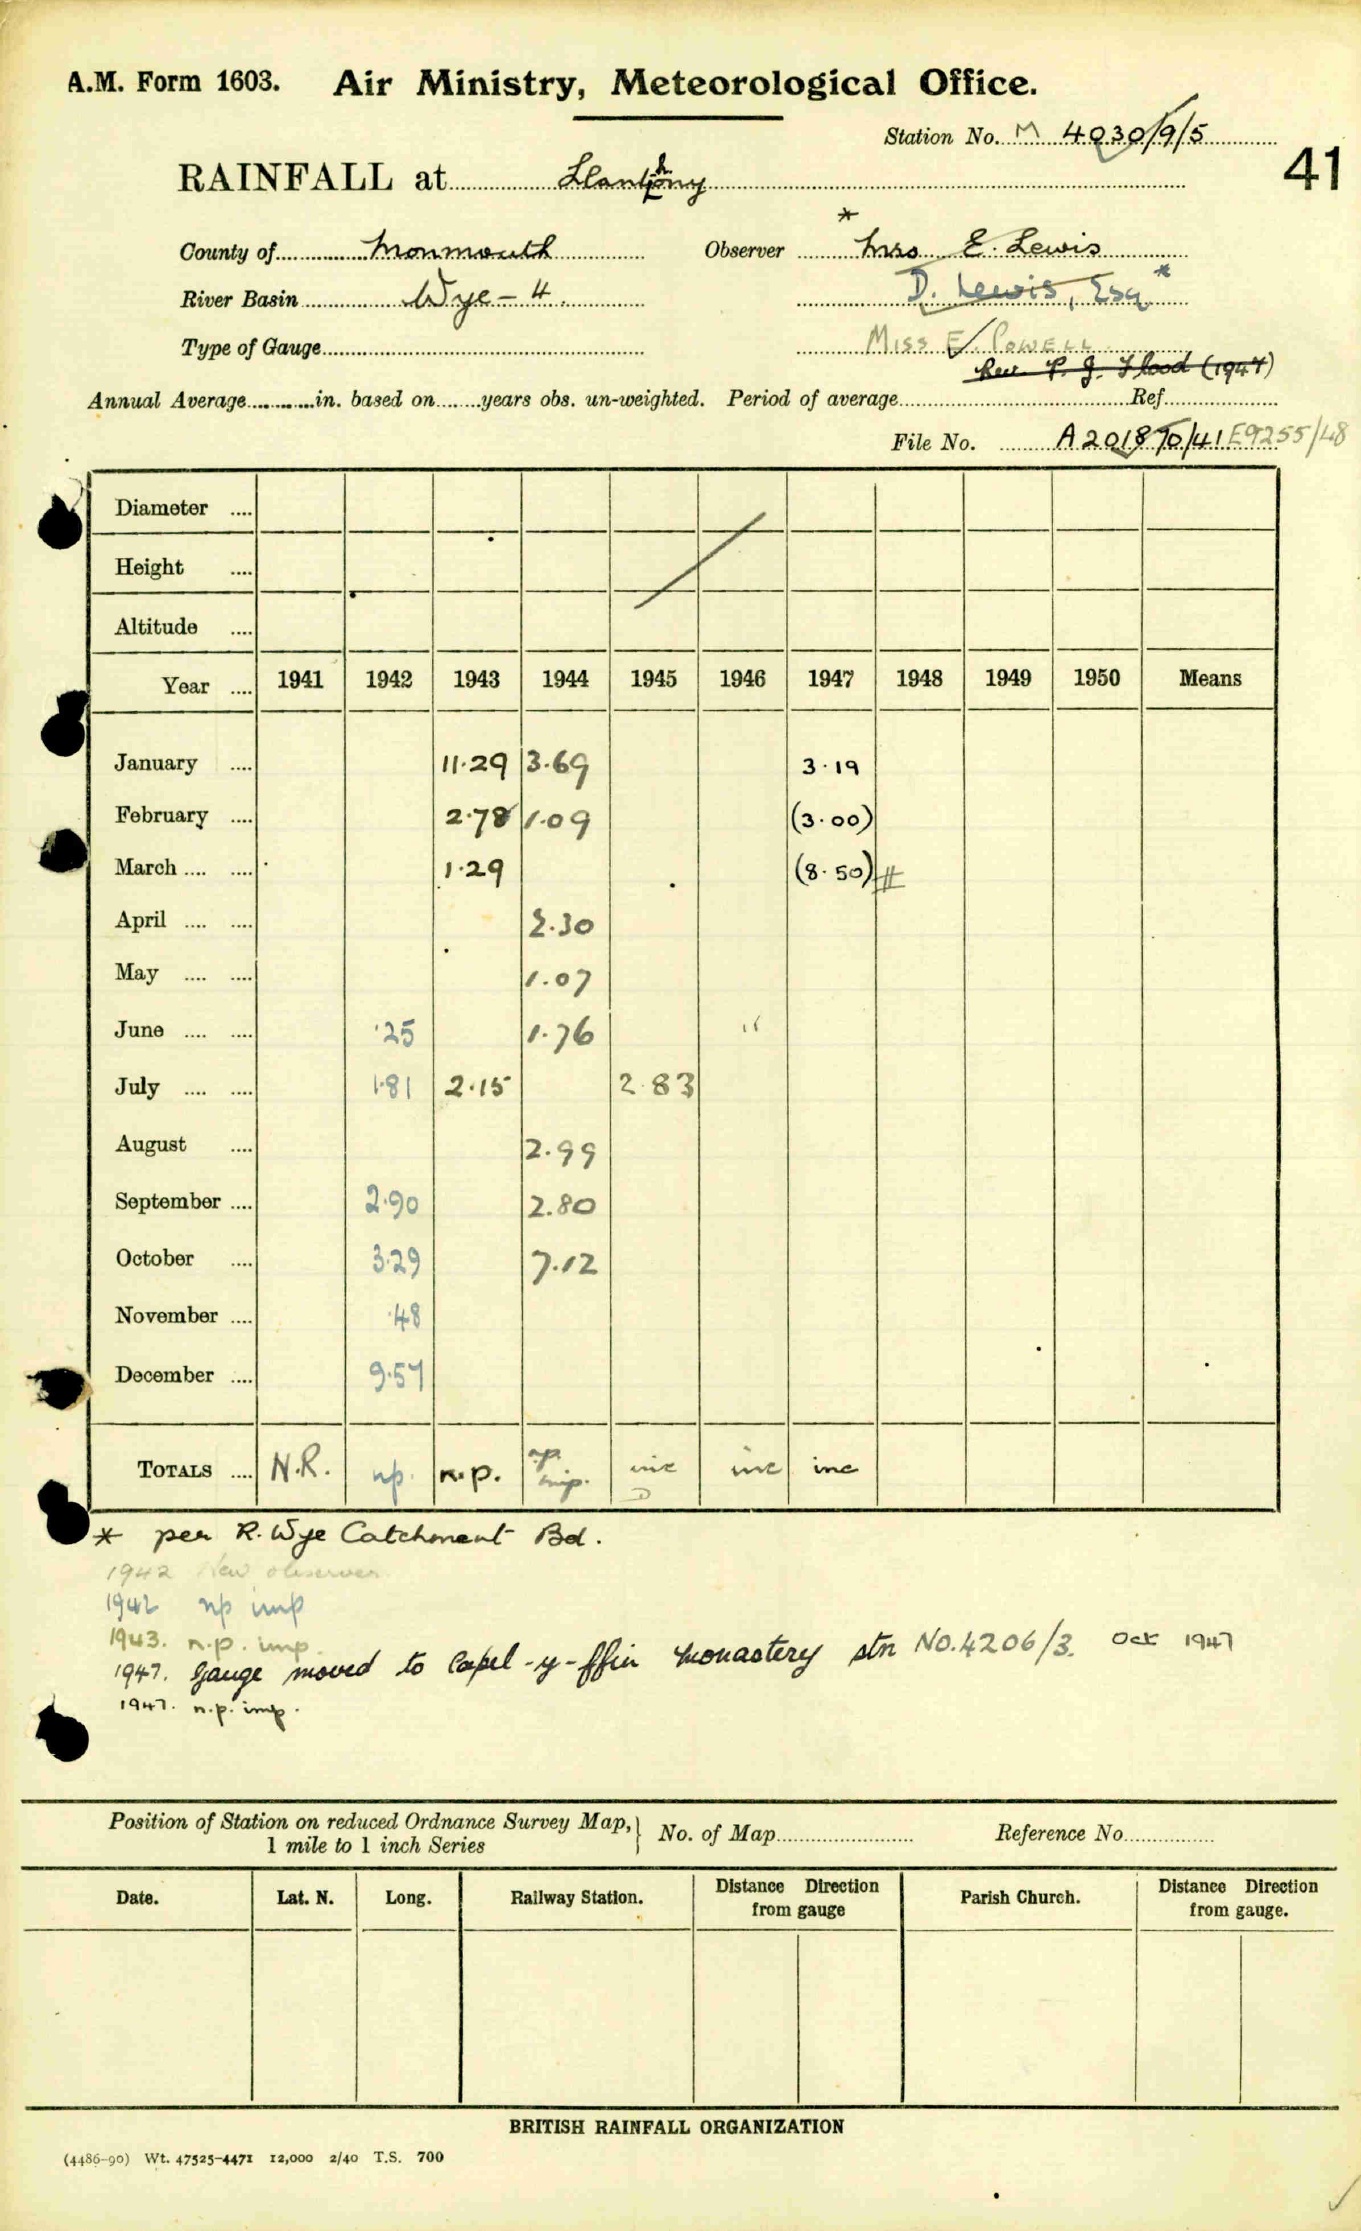 A.M. Form 1603. Air Ministry, Meteorological Office.
Station No. M 4030/9/5
41
RAINFALL at Llanthony
*
County of Monmouth Observer Mrs E. Lewis
River Basin Wye – 4. D. Lewis, Esq *
Type of Gauge MISS E. POWELL
Rev. P. J. Flood (1947)
Annual Average in. based on years obs. un-weighted. Period of average Ref.
File No. A201870/41 E9255/48
Diameter
Height
Altitude
Year 1941 1942 1943 1944 1945 1946 1947 1948 1949 1950 Means
January 11.29 3.69 3.19
February 2.78 1.09 (3.00)
March 1.29 (8.50) #
April 2.30
May 1.07
June .25 1.76 "
July 1.81 2.15 2.83
August 2.99
September 2.90 2.80
October 3.29 7.12
November .48
December 9.57
TOTALS N.R. np. n.p. n.p. imp. inc inc inc
* per R. Wye Catchment Bd.
1942 New observer
1942 np imp
1943. n.p. imp.
1947. Gauge moved to Capel-y-ffin Monastery stn No. 4206/3. Oct 1947
1947. n.p. imp.
Position of Station on reduced Ordnance Survey Map, 1 mile to 1 inch Series } No. of Map Reference No.
Date. Lat. N. Long. Railway Station. Distance Direction from gauge Parish Church. Distance Direction from gauge.
BRITISH RAINFALL ORGANIZATION
(4486–90) Wt. 47525–4471 12,000 2/40 T.S. 700